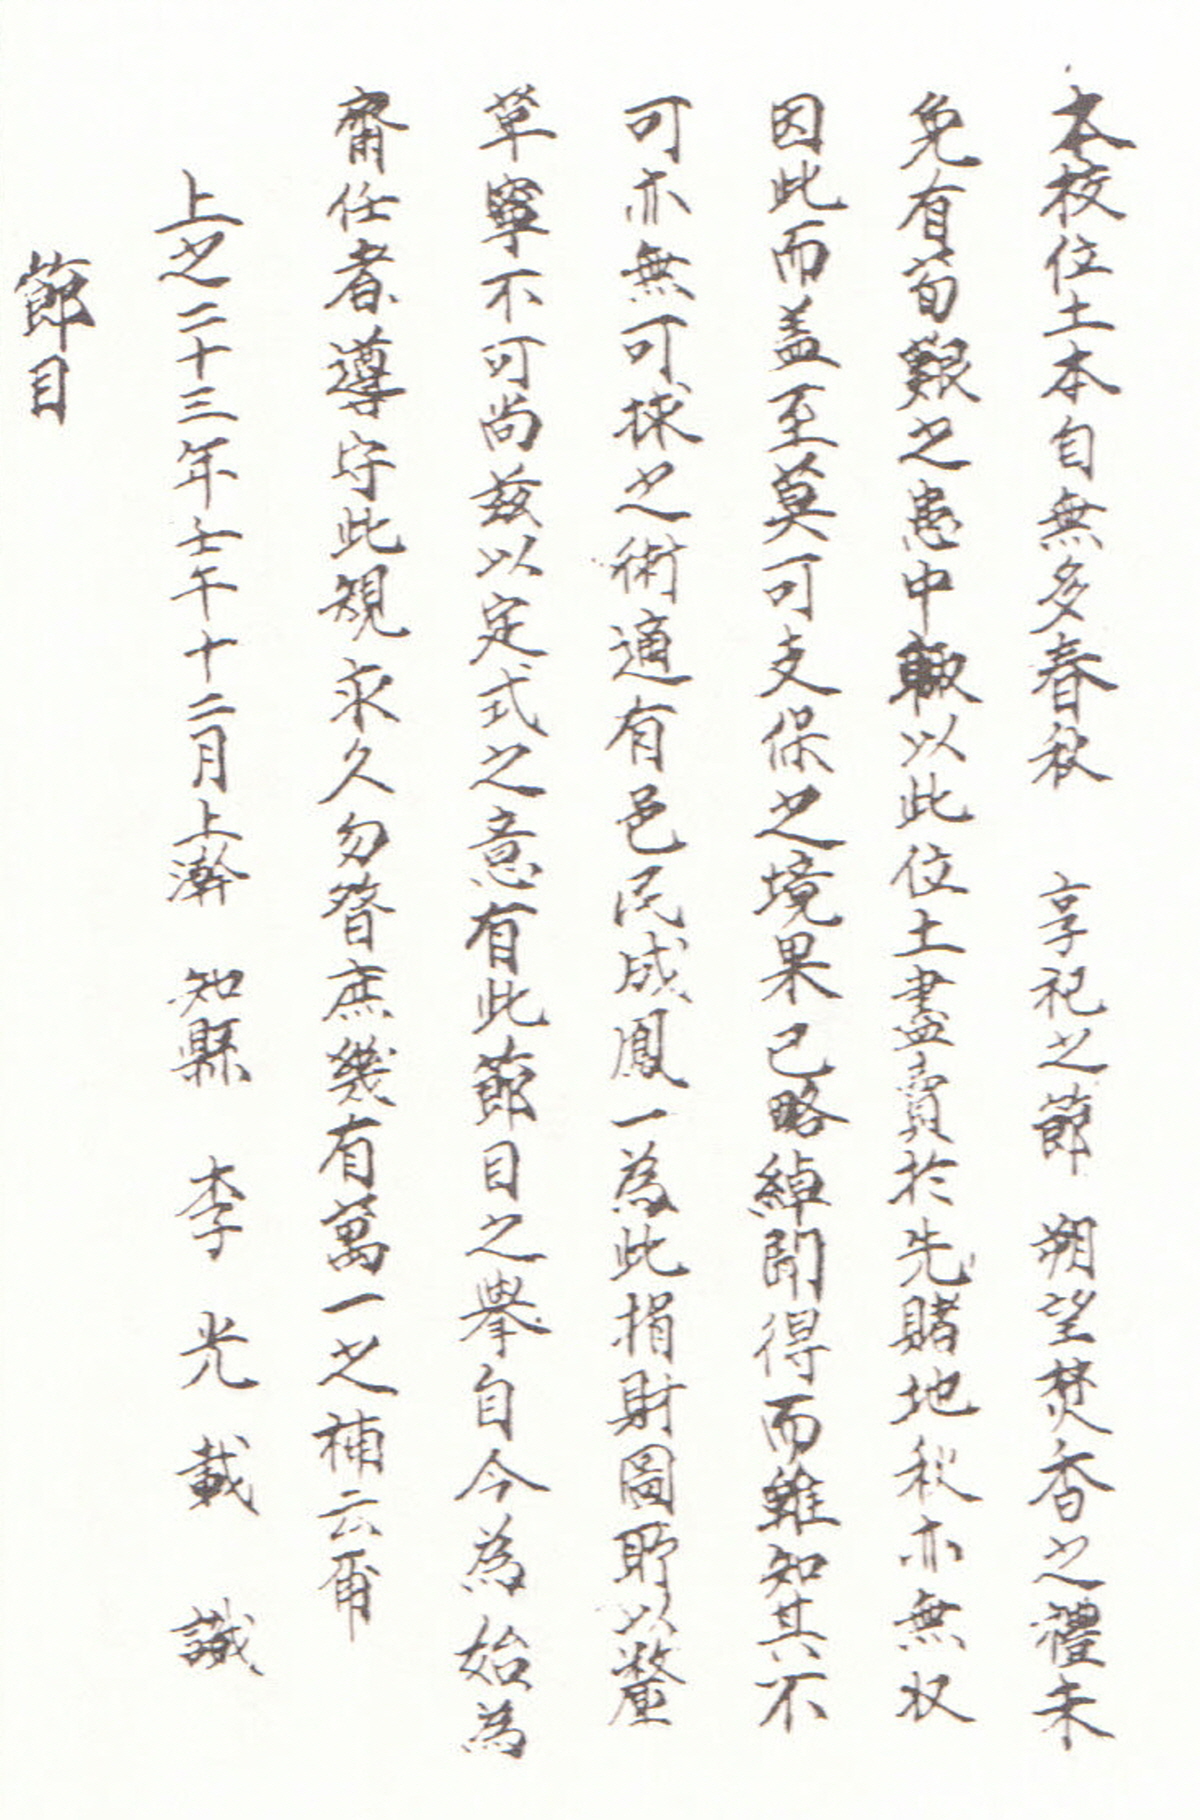 本校位土本自無多春秋 享祀之節 朔望焚香之禮未
免有苟艱之患中輙以此位土盡賣於先賭地秋亦無収
因此而盖至莫可支保之境果已略綽聞得而雖知其不
可亦無可捄之術適有邑民成鳳一為此捐財圖所以釐
革寧不可尚玆以定式之意有此節目之擧自今為始為
齋任者遵守此規永久勿替庶幾有萬一之補云爾
上之二十三年壬午十二月上澣 知縣 李 光 載 識
節目